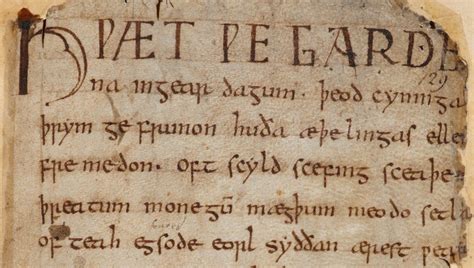 HǷÆT ǷE GARDE
na ingear dagum · þeod cyninga
þrym ge frunon huða æþelingas elle
fre medon · oft scyld scefing sceaþe
þreatum monegū mægþum meodo setla
of teah egsode eorl syððan ærest